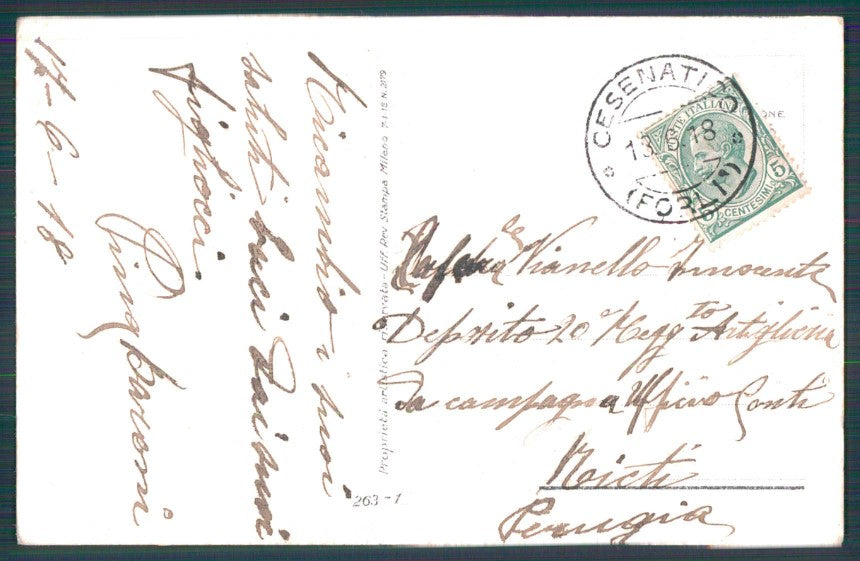 17-6-18
Ricambio i suoi
saluti baci dai miei
fighiocci.
Pina Baroni
Proprietà artistica riservata - Uff. Rev. Stampa Milano 7.1.18 N. 2179
263-1
CESENATICO
(FORLÌ)
POSTE ITALIANE
CENTESIMI 5
Vianello Innocente
Deposito 20° Regg.to Artiglieria
da campagna Ufficio Conti
Rieti
Perugia